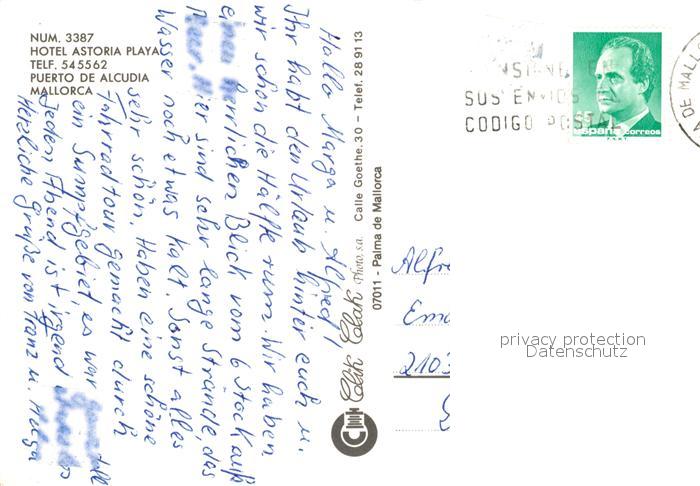 NUM. 3387
HOTEL ASTORIA PLAYA
TELF. 545562
PUERTO DE ALCUDIA
MALLORCA
Hallo Marga u. Alfred!
Ihr habt den Urlaub hinter euch u.
wir schon die Hälfte rum. Wir haben
einen herrlichen Blick vom 6 Stock aufs
Meer. Hier sind sehr lange Strände, das
Wasser noch etwas kalt. Sonst alles
sehr schön. Haben eine schöne
Fahrradtour gemacht durch
ein Sumpfgebiet, es war
Jeden Abend ist irgend
Herzliche Grüße von Franz u. Helga
Clik Clak Photo, s.a. Calle Goethe, 30 - Telef. 28 91 13
07011 - Palma de Mallorca
SUS ENVIOS
CODIGO POSTAL
DE MALL
españa correos
Alfre
2103
privacy protection
Datenschutz